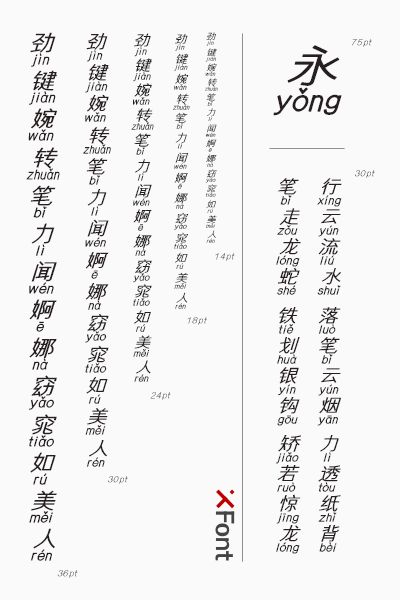 永
yǒng
75pt
行 xíng 云 yún 流 liú 水 shuǐ
落 luò 笔 bǐ 云 yún 烟 yān
力 lì 透 tòu 纸 zhǐ 背 bèi
笔 bǐ 走 zǒu 龙 lóng 蛇 shé
铁 tiě 划 huà 银 yín 钩 gōu
矫 jiǎo 若 ruò 惊 jīng 龙 lóng
30pt
劲 jìn 键 jiàn 婉 wǎn 转 zhuǎn 笔 bǐ 力 lì 闻 wén 婀 ē 娜 nà 窈 yǎo 窕 tiǎo 如 rú 美 měi 人 rén
14pt
劲 jìn 键 jiàn 婉 wǎn 转 zhuǎn 笔 bǐ 力 lì 闻 wén 婀 ē 娜 nà 窈 yǎo 窕 tiǎo 如 rú 美 měi 人 rén
18pt
劲 jìn 键 jiàn 婉 wǎn 转 zhuǎn 笔 bǐ 力 lì 闻 wén 婀 ē 娜 nà 窈 yǎo 窕 tiǎo 如 rú 美 měi 人 rén
24pt
劲 jìn 键 jiàn 婉 wǎn 转 zhuǎn 笔 bǐ 力 lì 闻 wén 婀 ē 娜 nà 窈 yǎo 窕 tiǎo 如 rú 美 měi 人 rén
30pt
劲 jìn 键 jiàn 婉 wǎn 转 zhuǎn 笔 bǐ 力 lì 闻 wén 婀 ē 娜 nà 窈 yǎo 窕 tiǎo 如 rú 美 měi 人 rén
36pt
XFont